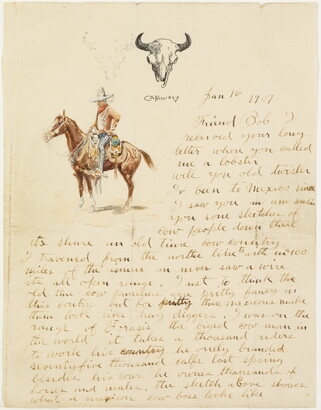 CMRussell
Jan 16 1907
Friend Bob I
received your long
letter where you called
me a lobster
well you old twister
Iv been to Mexico since
I saw you an am
you some sketches of
cow people down there
its shure an old time cow country
I traveled from the north line with in 100
miles of the ismus an never saw a wire
its all open range. Just to think the
old time cow punchers are pritty fancy in
this country but for pritty the mexicans make
them look like hay diggers. I was on the
range of the biggest cow man in
the world it takes a thousand riders
to work his country he onely branded
seventy five thousand calves last spring
besides his cows he ownes thousands of
horses and mules, the sketch above shows
what a mexican cow boss looks like